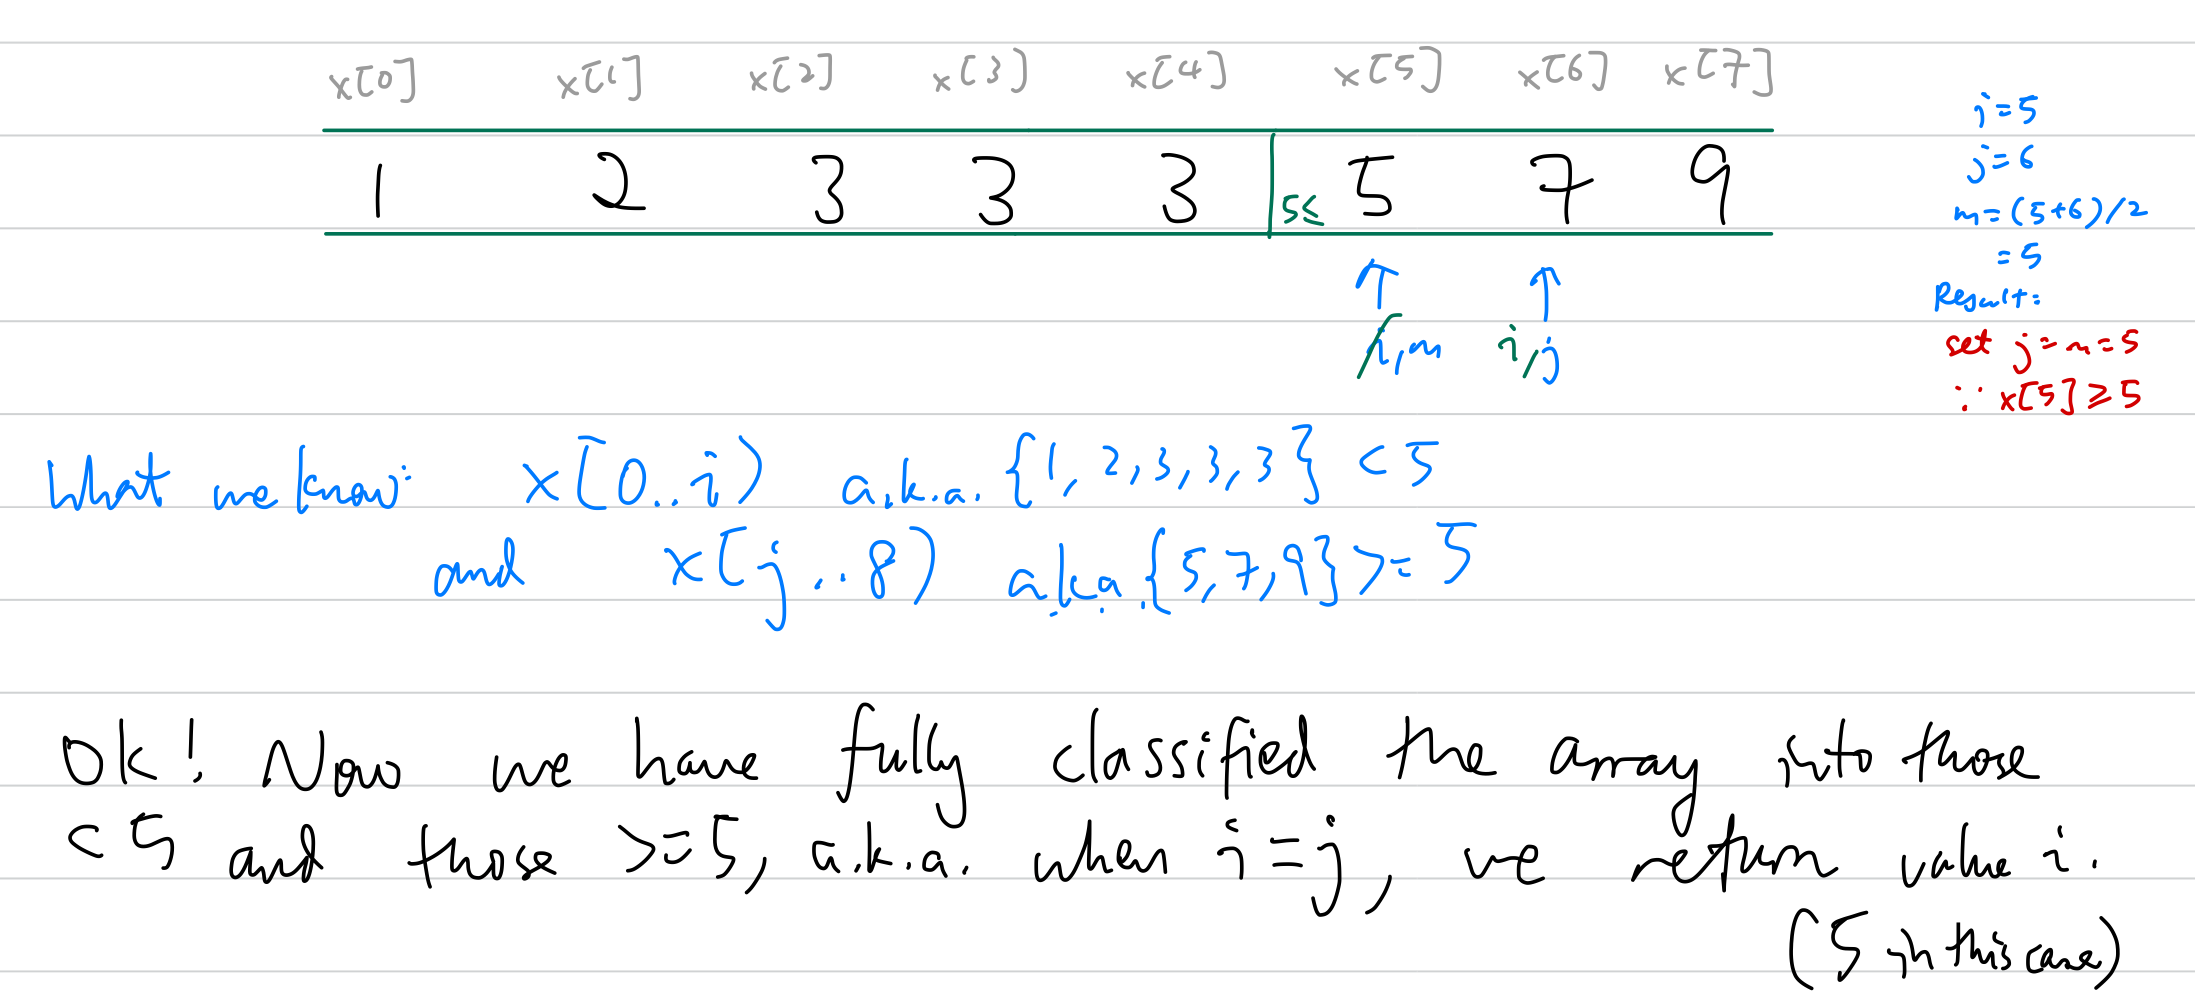 x[0] x[1] x[2] x[3] x[4] x[5] x[6] x[7]
1 2 3 3 3 5≤ 5 7 9
i,m i,j
i=5
j=6
m=(5+6)/2
=5
Result:
set j=m=5
∵ x[5]≥5
What we know: x[0..i) a.k.a. {1,2,3,3,3} <5
and x[j..8) a.k.a. {5,7,9} >=5
Ok! Now we have fully classified the array into those
<5 and those >=5, a.k.a. when i=j, we return value i.
(5 in this case)